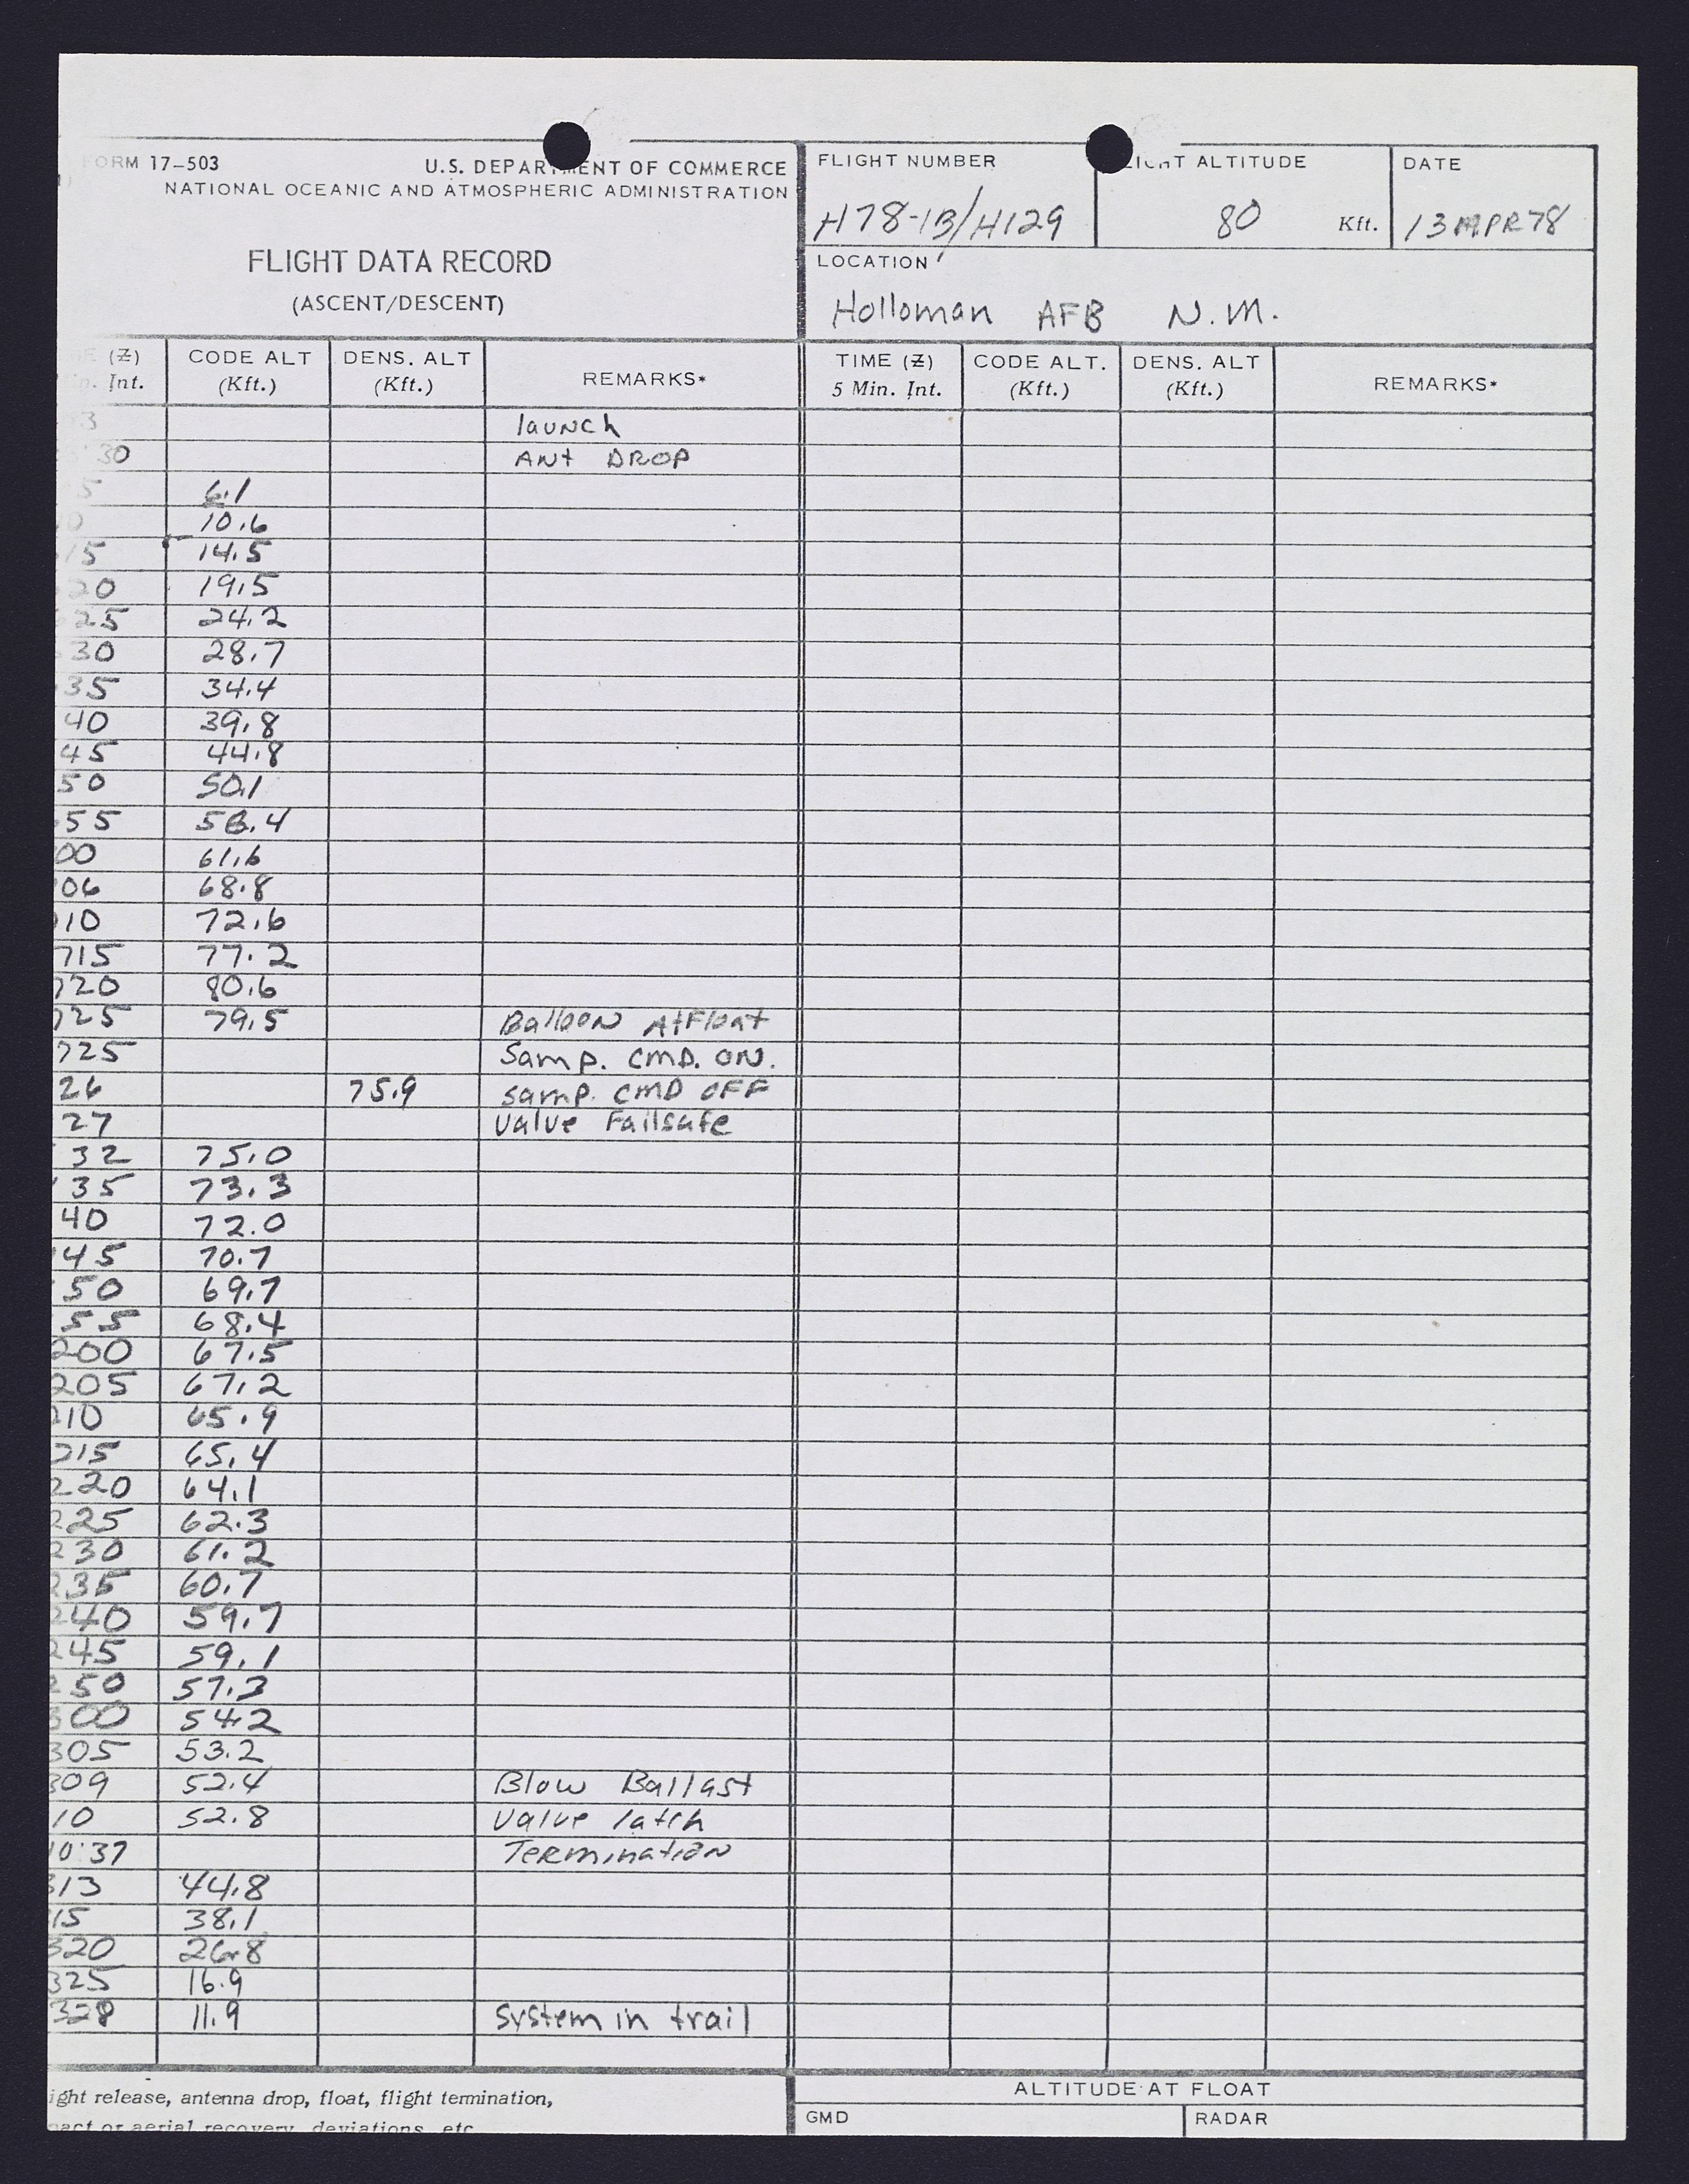 FORM 17-503
U.S. DEPARTMENT OF COMMERCE
NATIONAL OCEANIC AND ATMOSPHERIC ADMINISTRATION
FLIGHT DATA RECORD
(ASCENT/DESCENT)
FLIGHT NUMBER
H78-1B/H129
ALTITUDE
80 Kft.
DATE
13 APR 78
LOCATION
Holloman AFB N.M.
(Z) CODE ALT DENS. ALT REMARKS* TIME (Z) CODE ALT. DENS. ALT REMARKS*
Int. (Kft.) (Kft.) 5 Min. Int. (Kft.) (Kft.)
3 launch
30 ANt DROP
5 6.1
0 10.6
15 14.5
20 19.5
25 24.2
30 28.7
35 34.4
40 39.8
45 44.8
50 50.1
55 56.4
00 61.6
06 68.8
10 72.6
715 77.2
720 80.6
725 79.5 Balloon At Float
725 Samp. CMD. ON.
26 75.9 samp. CMD OFF
27 Valve Failsafe
32 75.0
35 73.3
40 72.0
45 70.7
50 69.7
55 68.4
200 67.5
205 67.2
210 65.9
215 65.4
220 64.1
225 62.3
230 61.2
235 60.7
240 59.7
245 59.1
250 57.3
300 54.2
305 53.2
309 52.4 Blow Ballast
10 52.8 Valve latch
10:37 Termination
313 44.8
15 38.1
320 26.8
325 16.9
328 11.9 System in trail
ight release, antenna drop, float, flight termination,
pact or aerial recovery, deviations, etc
ALTITUDE AT FLOAT
GMD RADAR